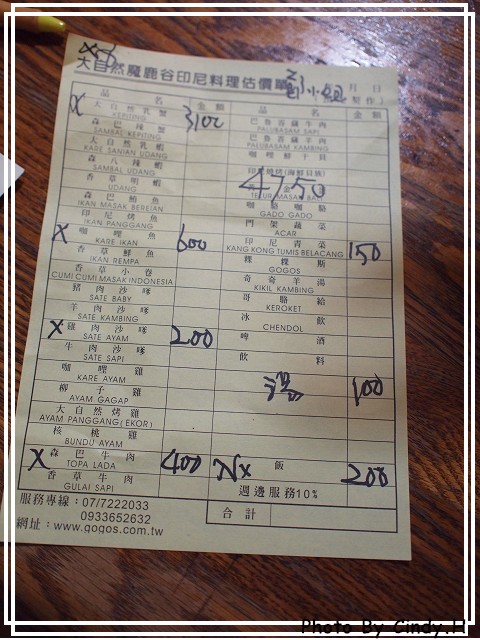 大自然魔鹿谷印尼料理估價單
小組
月 日
製作）
品 名 金額 品 名 金額
X 大自然乳蟹 3100 巴魯菩薩牛肉
KEPITING PALUBASAM SAPI
森巴辣蟹 巴魯菩薩羊肉
SAMBAL KEPITING PALUBASAM KAMBING
大自然乳蝦 咖哩鮮干貝
KARE SANIAN UDANG
森八辣蝦
SAMBAL UDANG 4750
香草明蝦
UDANG
森巴鮪魚 咖駱咖駱
IKAN MASAK BEREIAN GADO GADO
印尼烤魚 門架蔬菜
IKAN PANGGANG ACAR
X 咖哩魚 600 印尼青菜 150
KARE IKAN KANG KONG TUMIS BELACANG
香草鮮魚 粿粿斯
IKAN REMPA GOGOS
香草小卷 奇奇羊湯
CUMI CUMI MASAK INDONESIA KIKIL KAMBING
豬肉沙嗲 哥駱給
SATE BABY KEROKET
羊肉沙嗲 冰飲
SATE KAMBING CHENDOL
X 雞肉沙嗲 200 啤酒
SATE AYAM
牛肉沙嗲 飲料
SATE SAPI
咖哩雞 湯 100
KARE AYAM
椰子雞
AYAM GAGAP
大自然烤雞
AYAM PANGGANG(EKOR)
核桃雞
BUNDU AYAM
X 森巴牛肉 400 飯 200
TOPA LADA
香草牛肉 週邊服務10%
GULAI SAPI
服務專線：07/7222033 合計
0933652632
網址：www.gogos.com.tw
Photo By Cindy.H